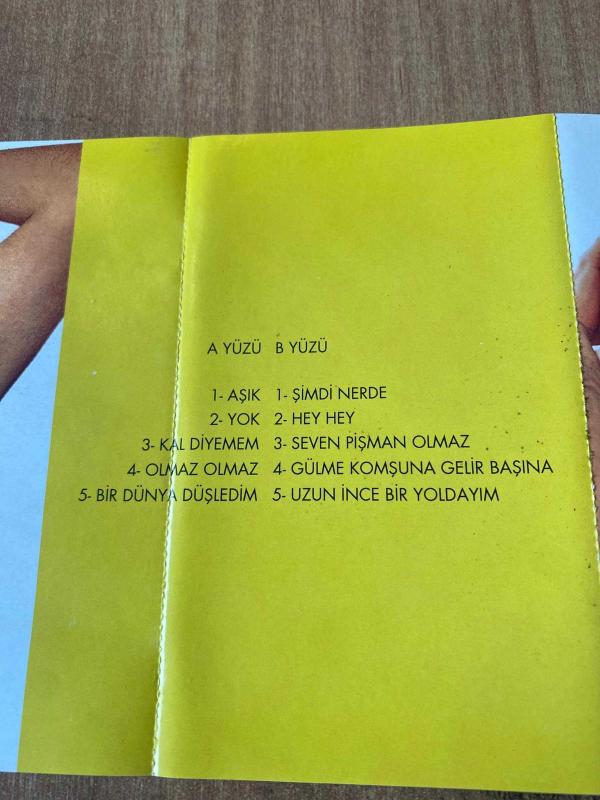 A YÜZÜ B YÜZÜ
1- AŞIK 1- ŞİMDİ NERDE
2- YOK 2- HEY HEY
3- KAL DİYEMEM 3- SEVEN PİŞMAN OLMAZ
4- OLMAZ OLMAZ 4- GÜLME KOMŞUNA GELİR BAŞINA
5- BİR DÜNYA DÜŞLEDİM 5- UZUN İNCE BİR YOLDAYIM